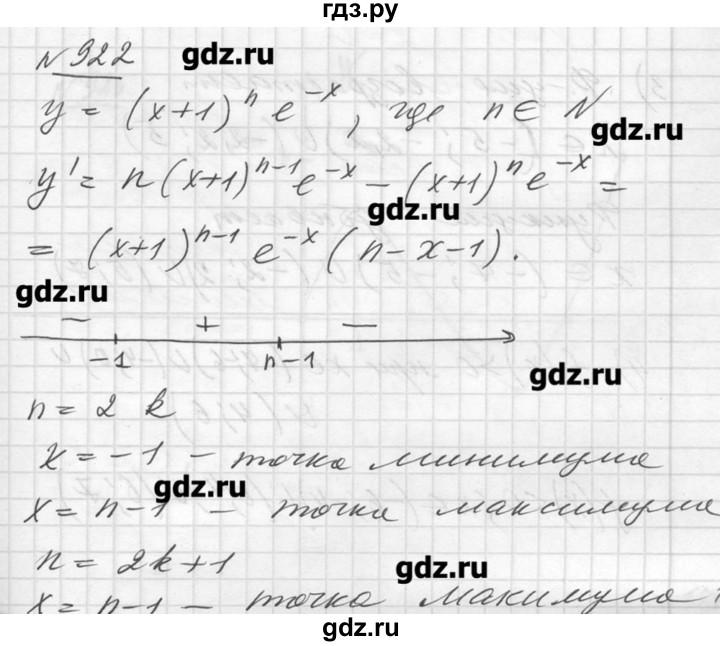 гдз.ру
№ 922
gdz.ru
y = (x+1)ⁿ e⁻ˣ, где n ∈ N
gdz.ru
y' = n(x+1)ⁿ⁻¹e⁻ˣ − (x+1)ⁿe⁻ˣ =
gdz.ru
= (x+1)ⁿ⁻¹ e⁻ˣ (n−x−1).
gdz.ru
− + −
−1 n−1
gdz.ru
n = 2 k
x = −1 − точка минимума
gdz.ru
x = n−1 − точка максимума
n = 2k+1
gdz.ru
x = n−1 − точка макимума
gdz.ru